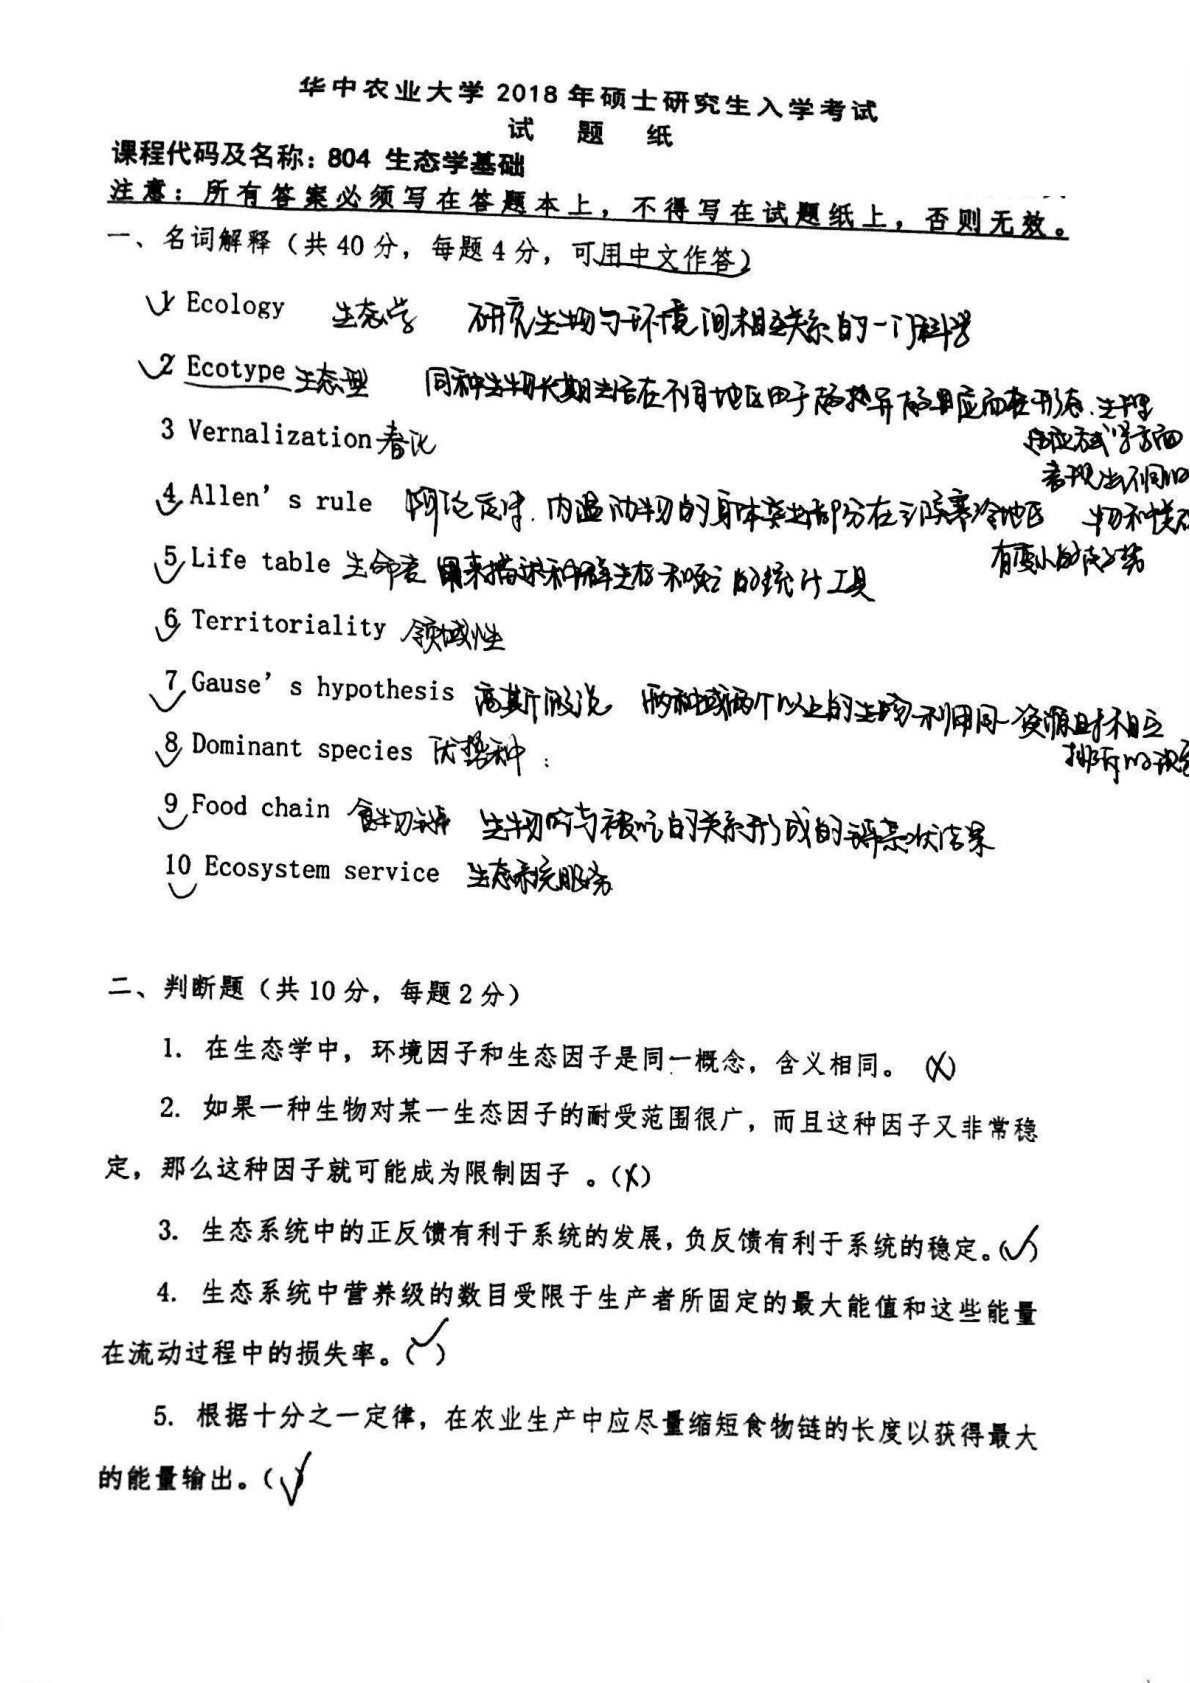 华中农业大学 2018 年硕士研究生入学考试
试 题 纸
课程代码及名称：804 生态学基础
注意：所有答案必须写在答题本上，不得写在试题纸上，否则无效。
一、名词解释（共 40 分，每题 4 分，可用中文作答）
1 Ecology 生态学 研究生物与环境间相互关系的一门科学
2 Ecotype 生态型 同种生物长期生活在不同地区由于趋异适应而在形态、生理
适应方式等方面
3 Vernalization 春化
表现出不同的
4 Allen's rule 阿伦定律. 内温动物的身体突出部分在寒冷地区
有变小的趋势
5 Life table 生命表 用来描述种群生存和死亡的统计工具
6 Territoriality 领域性
7 Gause's hypothesis 高斯假说 两种或两个以上的生物利用同一资源时相互
排斥的现象
8 Dominant species 优势种：
9 Food chain 食物链 生物吃与被吃的关系形成的链条状结果
10 Ecosystem service 生态系统服务
二、判断题（共 10 分，每题 2 分）
1. 在生态学中，环境因子和生态因子是同一概念，含义相同。（X）
2. 如果一种生物对某一生态因子的耐受范围很广，而且这种因子又非常稳
定，那么这种因子就可能成为限制因子 。（X）
3. 生态系统中的正反馈有利于系统的发展，负反馈有利于系统的稳定。（✓）
4. 生态系统中营养级的数目受限于生产者所固定的最大能值和这些能量
在流动过程中的损失率。（✓）
5. 根据十分之一定律，在农业生产中应尽量缩短食物链的长度以获得最大
的能量输出。（✓）